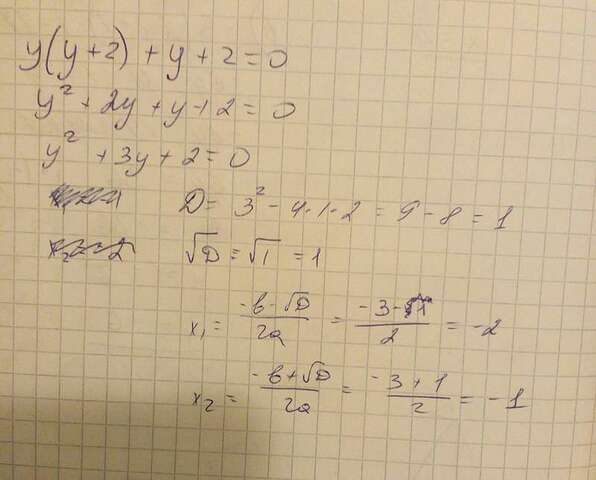 y(y+2) + y + 2 = 0
y² + 2y + y + 2 = 0
y² + 3y + 2 = 0
D = 3² - 4·1·2 = 9 - 8 = 1
√D = √1 = 1
x₁ = (-b-√D)/2a = (-3-1)/2 = -2
x₂ = (-b+√D)/2a = (-3+1)/2 = -1